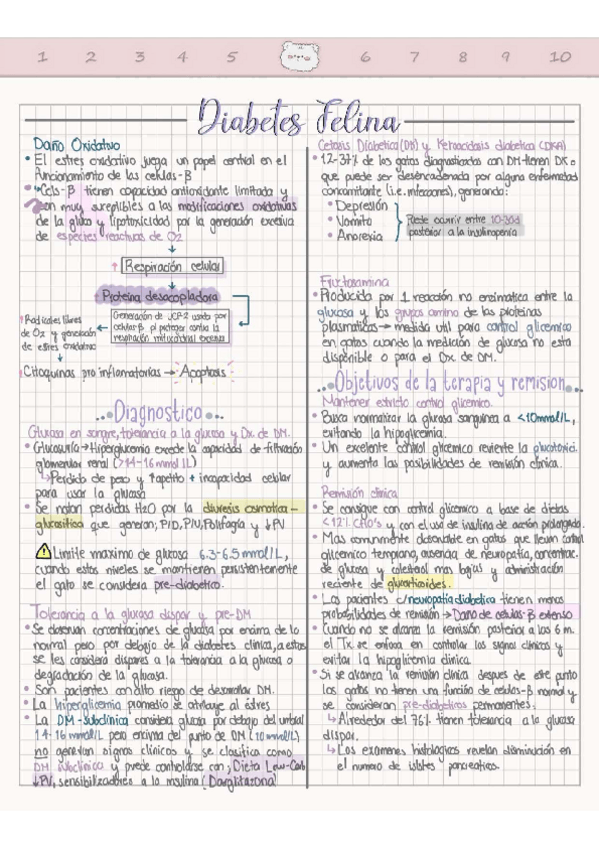 1 2 3 4 5 6 7 8 9 10
Diabetes Felina
Daño Oxidativo
• El estres oxidativo juega un papel central en el
funcionamiento de las celulas-β
• Cels-β tienen capacidad antioxidante limitada y
son muy sureptibles a las modificaciones oxidativas
de la gluco y lipotoxicidad por la generación excesiva
de especies reactivas de O2
↑ Respiración celular
↑ Proteína desacopladora
Generación de UCP-2 usada por
celulas-β pl proteger contra la
respiración mitocondrial excesiva
↑ Radicales libres
de O2 y generación
de estres oxidativo
↑ Citoquinas pro inflamatorias → Apoptosis
...Diagnostico...
Glucosa en sangre, tolerancia a la glucosa y Dx. de DM.
• Glucosuria → Hiperglucemia excede la capacidad de filtración
glomerular renal (>14-16 mmol/L)
↳ Perdida de peso y ↑apetito + incapacidad celular
para usar la glucosa
• Se notan perdidas H2O por la diuresis osmotica -
glucositica que generan; P/D, P/U, Polifagia y ↓PV
Limite maximo de glucosa 6.3-6.5 mmol/L,
cuando estos niveles se mantienen persistentemente
el gato se considera pre-diabetico.
Tolerancia a la glucosa dispar y pre-DM
• Se observan concentraciones de glucosa por encima de lo
normal pero por debajo de la diabetes clinica, a estos
se les considera dispares a la tolerancia a la glucosa o
degradación de la glucosa.
• Son pacientes con alto riesgo de desarrollar DM.
• La hiperglicemia promedio se atribuye al estres
• La DM-Subclinica considera glucosa por debajo del umbral
14-16 mmol/L pero encima del punto de DM (10 mmol/L)
no generan signos clinicos y se clasifica como
DM subclinica y puede controlarse con; Dieta Low-Carb
↓PV, sensibilizadores a la insulina (Darglitazona)
Cetosis Diabetica (DB) y Ketoacidosis diabetica (DKA)
• 12-37% de los gatos diagnosticados con DM tienen DK o
que puede ser desencadenada por alguna enfermedad
concomitante (i.e. infecciones), generando:
• Depresión
• Vomito
• Anorexia
Puede ocurrir entre 10-30d
posterior a la insulinopenia
Fructosamina
• Producida por 1 reacción no enzimatica entre la
glucosa y los grupos amino de las proteinas
plasmaticas → medida util para control glicemico
en gatos cuando la medición de glucosa no esta
disponible o para el Dx. de DM.
...Objetivos de la terapia y remision...
Mantener estricto control glicemico.
• Busca normalizar la glucosa sanguinea a <10mmol/L,
evitando la hipoglicemia.
• Un excelente control glicemico revierte la glucotoxici.
y aumenta las posibilidades de remisión clinica.
Remisión clinica
• Se consigue con control glicemico a base de dietas
<12% CHO's y con el uso de insulina de acción prolongada.
• Mas comunmente observante en gatos que llevan control
glicemico temprano, ausencia de neuropatía, concentrac.
de glucosa y colesterol mas bajas y administración
reciente de glucorticoides.
• Los pacientes c/neuropatia diabetica tienen menos
probabilidades de remisión → Daño de celulas-β extenso
• Cuando no se alcanza la remisión posterior a los 6 m.
el Tx se enfoca en controlar los signos clinicos y
evitar la hipoglicemia clinica.
• Si se alcanza la remisión clinica despues de este punto
los gatos no tienen una función de celulas-β normal y
se consideran pre-diabeticos permanentes.
↳ Alrededor del 76% tienen tolerancia a la glucosa
dispar.
↳ Los examenes histologicos revelan disminución en
el numero de islotes pancreaticos.